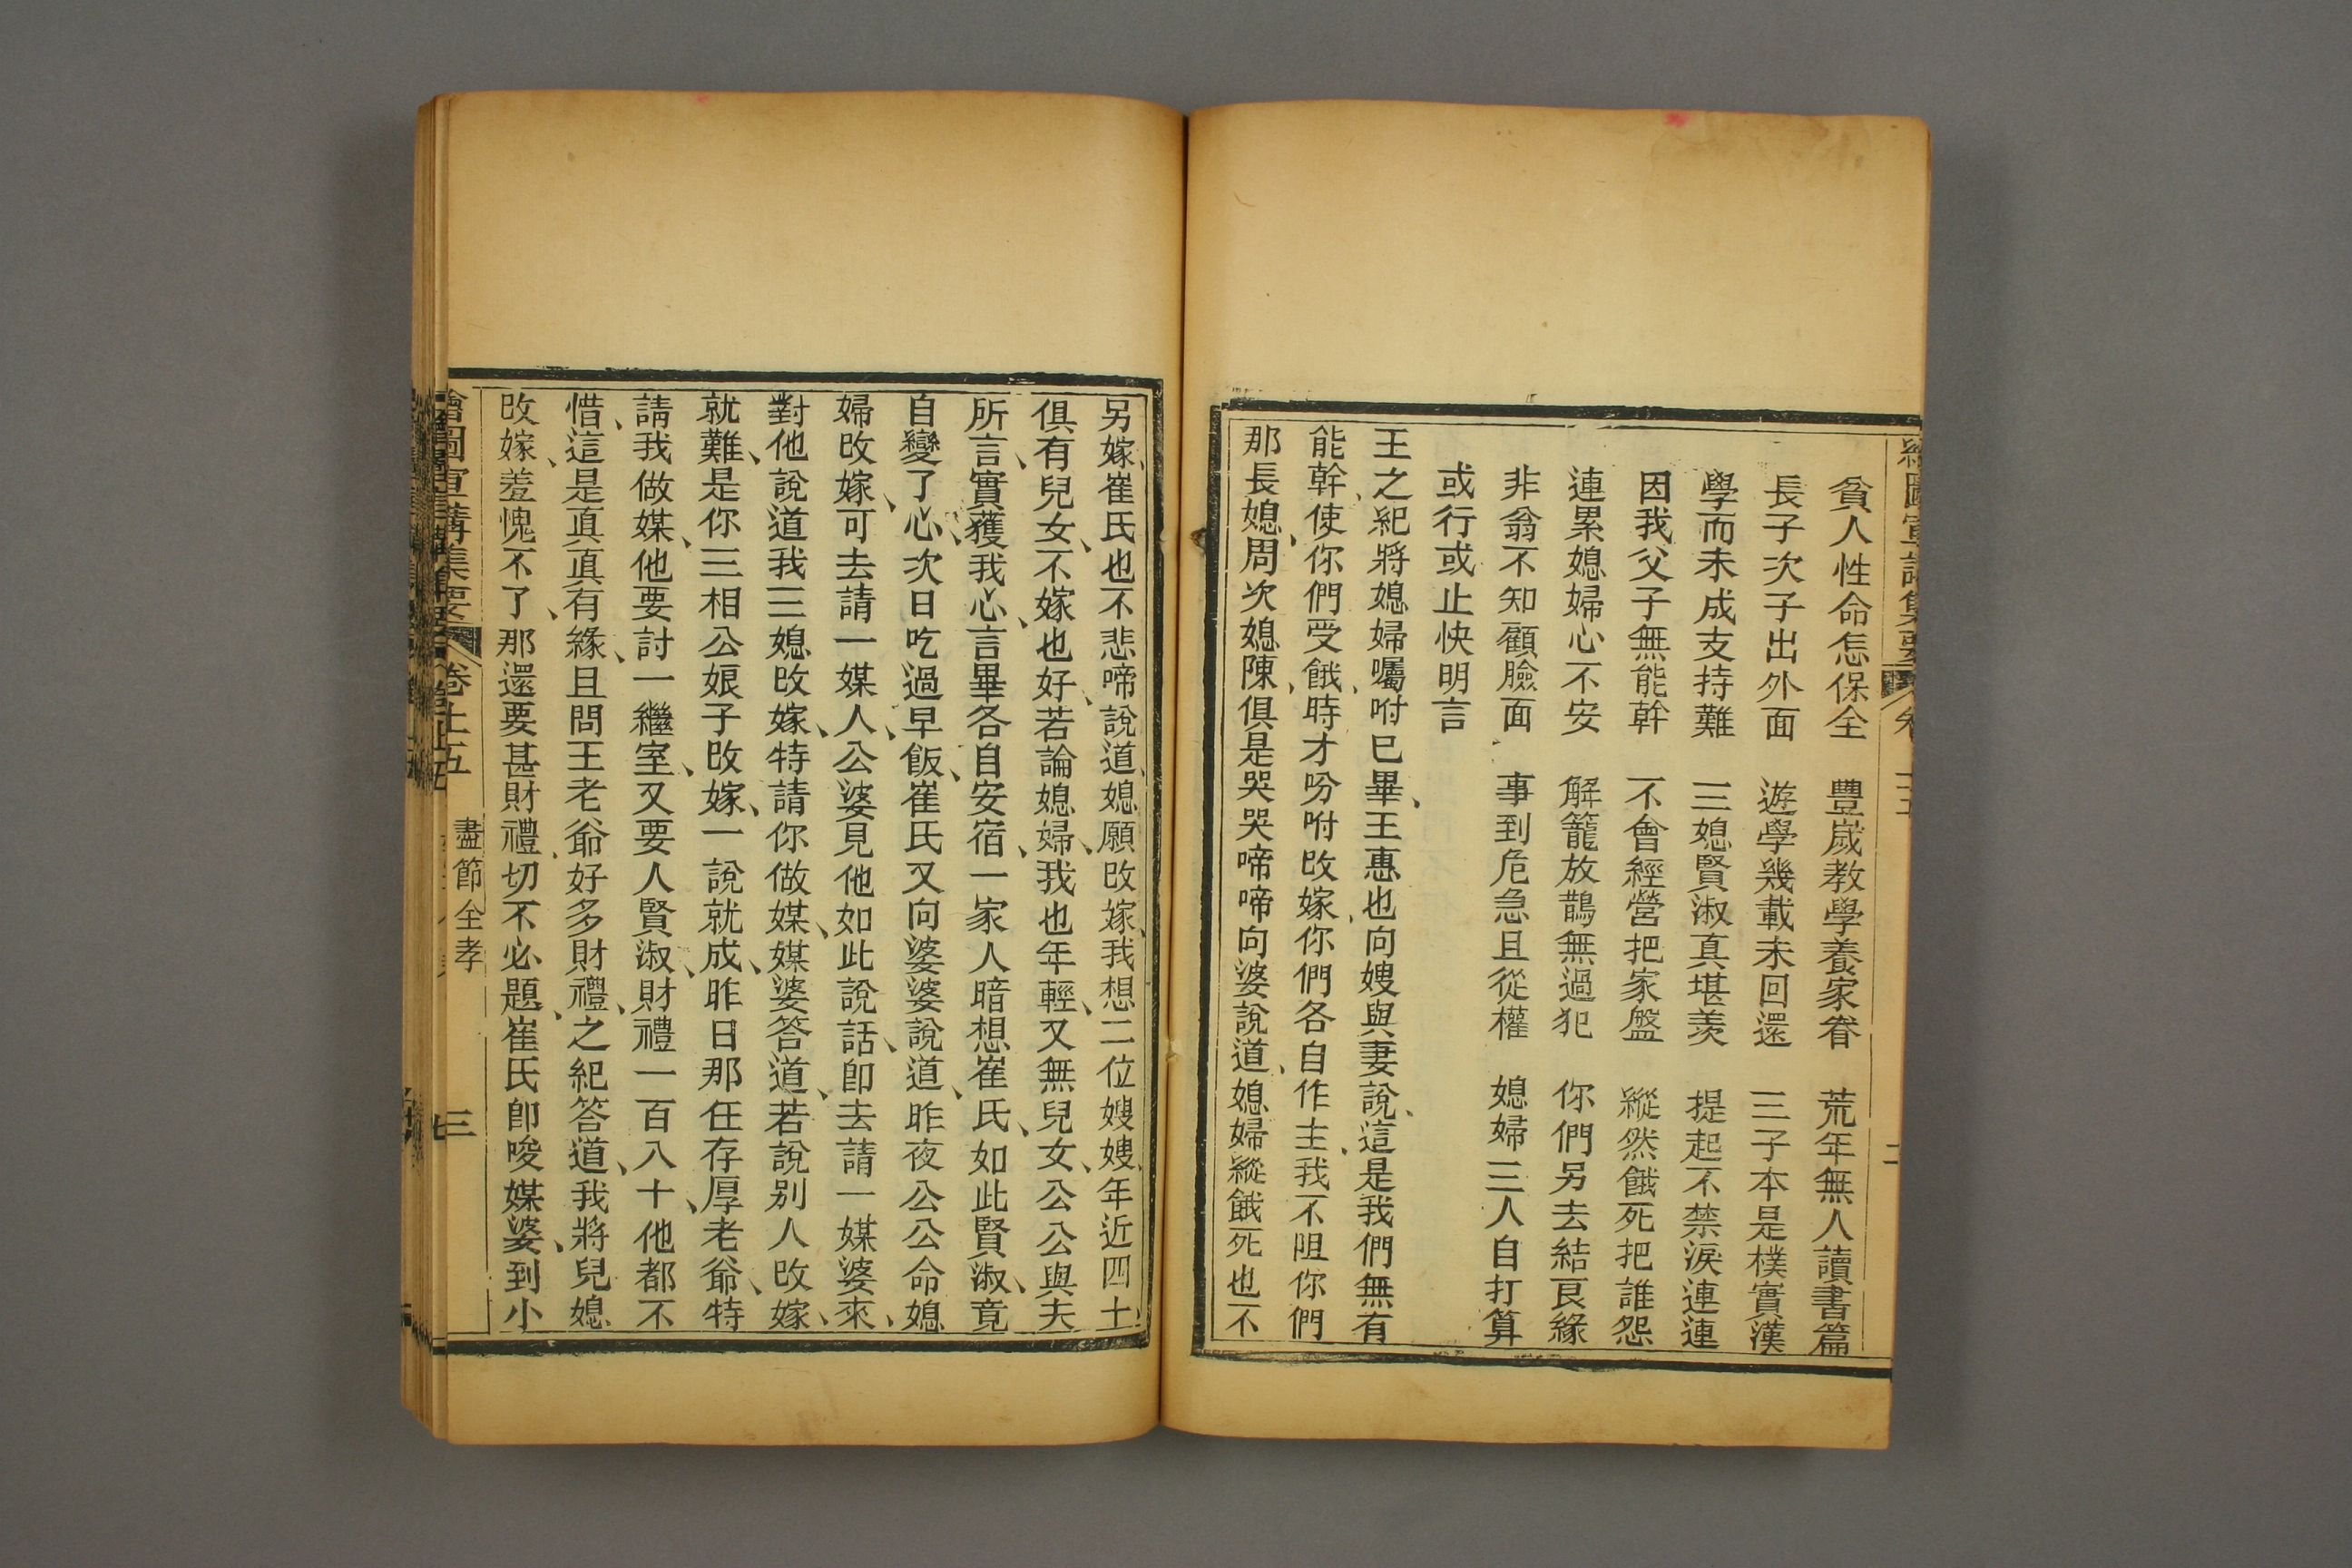 貧人性命怎保全 豐歲教學養家眷 荒年無人讀書篇
長子次子出外面 遊學幾載未回還 三子本是樸實漢
學而未成支持難 三媳賢淑真堪羡 提起不禁淚連連
因我父子無能幹 不會經營把家盤 縱然餓死把誰怨
連累媳婦心不安 解籠放鵲無過犯 你們另去結良緣
非翁不知顧臉面 事到危急且從權 媳婦三人自打算
或行或止快明言
王之紀將媳婦囑咐已畢、王惠也向嫂與妻說、這是我們無有
能幹、使你們受餓、時才吩咐改嫁、你們各自作主、我不阻你們
那長媳、周次媳陳、俱是哭哭啼啼向婆說道、媳婦縱餓死也不
另嫁、崔氏也不悲啼、說道、媳願改嫁、我想二位嫂嫂、年近四十、
俱有兒女、不嫁也好、若論媳婦、我也年輕、又無兒女、公公與夫
所言、實獲我心、言畢各自安宿、一家人暗想崔氏、如此賢淑、竟
自變了心、次日吃過早飯、崔氏又向婆婆說道、昨夜公公命媳
婦改嫁、可去請一媒人、公婆見他如此說話、卽去請一媒婆來、
對他說道我三媳改嫁、特請你做媒、媒婆答道、若說別人改嫁、
就難、是你三相公娘子改嫁、一說就成、昨日那任存厚老爺、特
請我做媒、他要討一繼室、又要人賢淑、財禮一百八十、他都不
惜、這是真真有緣、且問王老爺好多財禮、之紀答道、我將兒媳
改嫁、羞愧不了、那還要甚財禮、切不必題、崔氏卽唆媒婆、到小
繪圖宣講集要 卷十五 盡節全孝 三